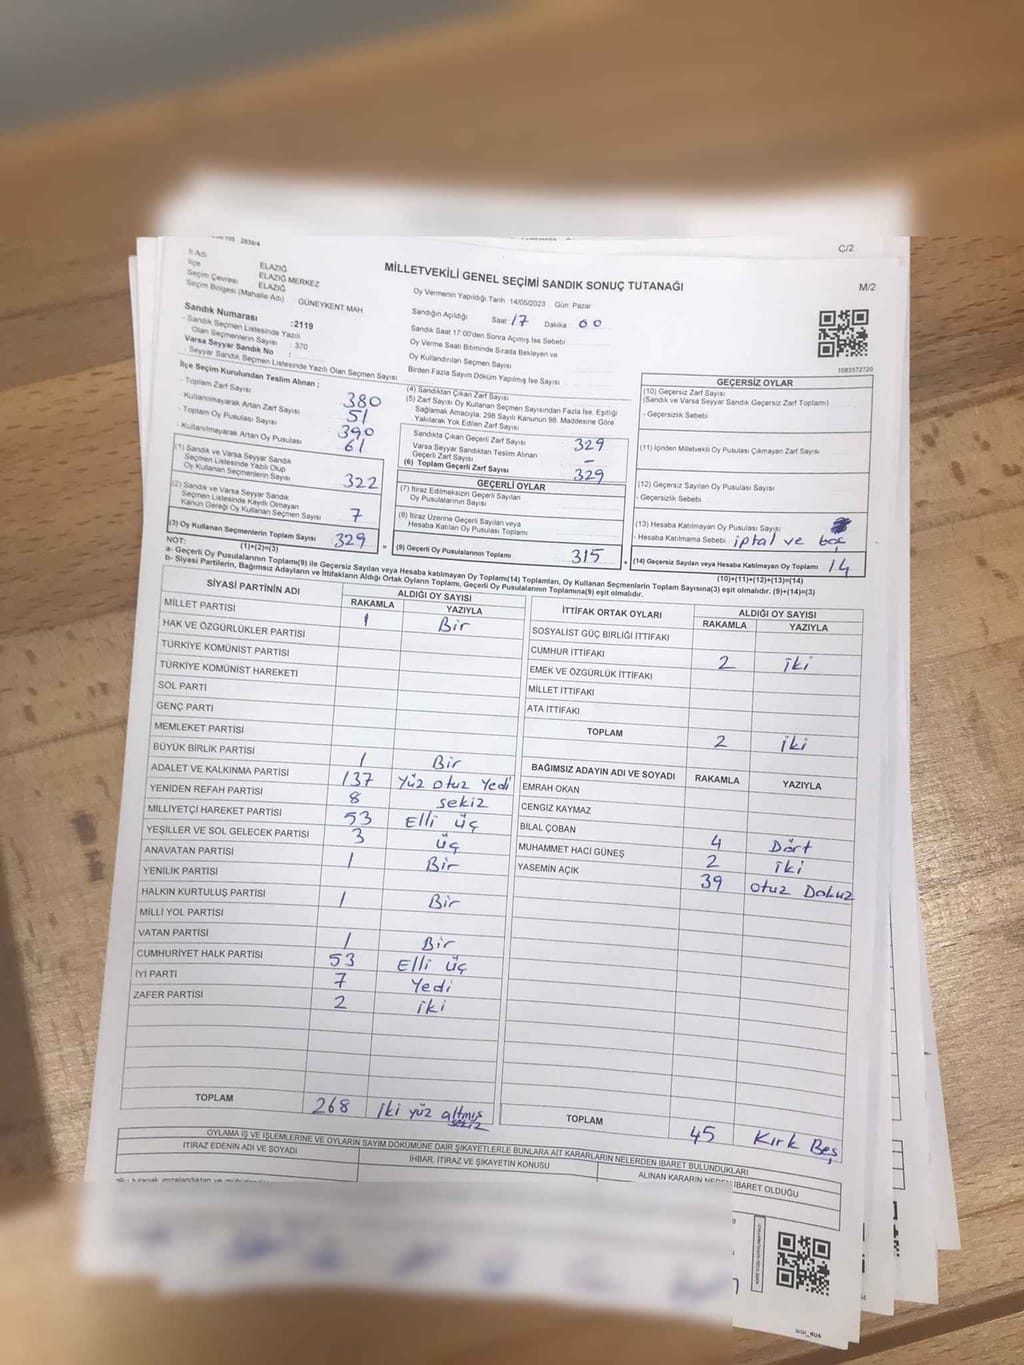 C/2
M/2
MİLLETVEKİLİ GENEL SEÇİMİ SANDIK SONUÇ TUTANAĞI
İl Adı ELAZIĞ
İlçe ELAZIĞ MERKEZ
Seçim Çevresi ELAZIĞ
Seçim Bölgesi (Mahalle Adı) GÜNEYKENT MAH
Sandık Numarası :2119
- Sandık Seçmen Listesinde Yazılı
Olan Seçmenlerin Sayısı : 370
Varsa Seyyar Sandık No :
- Seyyar Sandık Seçmen Listesinde Yazılı Olan Seçmen Sayısı
Oy Vermenin Yapıldığı Tarih 14/05/2023 Gün: Pazar
Sandığın Açıldığı Saat 17 Dakika 00
Sandık Saat 17:00'den Sonra Açımış İse Sebebi
Oy Verme Saati Bitiminde Sırada Bekleyen ve
Oy Kullandırılan Seçmen Sayısı
Birden Fazla Sayım Döküm Yapılmış İse Sayısı
1083572720
İlçe Seçim Kurulundan Teslim Alınan ;
- Toplam Zarf Sayısı 380
- Kullanılmayarak Artan Zarf Sayısı 51
- Toplam Oy Pusulası Sayısı 390
- Kullanılmayarak Artan Oy Pusulası 61
(1) Sandık ve Varsa Seyyar Sandık
Seçmen Listesinde Yazılı Olup
Oy Kullanan Seçmenlerin Sayısı 322
(2) Sandık ve Varsa Seyyar Sandık
Seçmen Listesinde Kayıtlı Olmayan
Kanun Gereği Oy Kullanan Seçmen Sayısı 7
(3) Oy Kullanan Seçmenlerin Toplam Sayısı 329
(1)+(2)=(3)
(4) Sandıktan Çıkan Zarf Sayısı
(5) Zarf Sayısı Oy Kullanan Seçmen Sayısından Fazla İse, Eşitliği
Sağlamak Amacıyla, 298 Sayılı Kanunun 98. Maddesine Göre
Yakılarak Yok Edilen Zarf Sayısı
Sandıkta Çıkan Geçerli Zarf Sayısı 329
Varsa Seyyar Sandıktan Teslim Alınan
Geçerli Zarf Sayısı –
(6) Toplam Geçerli Zarf Sayısı 329
GEÇERLİ OYLAR
(7) İtiraz Edilmeksizin Geçerli Sayılan
Oy Pusulalarının Sayısı
(8) İtiraz Üzerine Geçerli Sayılan veya
Hesaba Katılan Oy Pusulası Toplamı
= (9) Geçerli Oy Pusulalarının Toplamı 315 +
GEÇERSİZ OYLAR
(10) Geçersiz Zarf Sayısı
(Sandık ve Varsa Seyyar Sandık Geçersiz Zarf Toplamı)
- Geçersizlik Sebebi
(11) İçinden Milletvekili Oy Pusulası Çıkmayan Zarf Sayısı
(12) Geçersiz Sayılan Oy Pusulası Sayısı
- Geçersizlik Sebebi
(13) Hesaba Katılmayan Oy Pusulası Sayısı
- Hesaba Katılmama Sebebi iptal ve boş
(14) Geçersiz Sayılan veya Hesaba Katılmayan Oy Toplamı 14
(10)+(11)+(12)+(13)=(14)
NOT:
a- Geçerli Oy Pusulalarının Toplamı(9) ile Geçersiz Sayılan veya Hesaba Katılmayan Oy Toplamı(14) Toplamları, Oy Kullanan Seçmenlerin Toplam Sayısına(3) eşit olmalıdır. (9)+(14)=(3)
b- Siyasi Partilerin, Bağımsız Adayların ve İttifakların Aldığı Ortak Oyların Toplamı, Geçerli Oy Pusulalarının Toplamına(9) eşit olmalıdır.
SİYASİ PARTİNİN ADI ALDIĞI OY SAYISI
RAKAMLA YAZIYLA
MİLLET PARTİSİ 1 Bir
HAK VE ÖZGÜRLÜKLER PARTİSİ
TÜRKİYE KOMÜNİST PARTİSİ
TÜRKİYE KOMÜNİST HAREKETİ
SOL PARTİ
GENÇ PARTİ
MEMLEKET PARTİSİ
BÜYÜK BİRLİK PARTİSİ 1 Bir
ADALET VE KALKINMA PARTİSİ 137 Yüz otuz Yedi
YENİDEN REFAH PARTİSİ 8 sekiz
MİLLİYETÇİ HAREKET PARTİSİ 53 Elli üç
YEŞİLLER VE SOL GELECEK PARTİSİ 3 üç
ANAVATAN PARTİSİ 1 Bir
YENİLİK PARTİSİ
HALKIN KURTULUŞ PARTİSİ 1 Bir
MİLLİ YOL PARTİSİ
VATAN PARTİSİ 1 Bir
CUMHURİYET HALK PARTİSİ 53 Elli üç
İYİ PARTİ 7 Yedi
ZAFER PARTİSİ 2 iki
TOPLAM 268 iki yüz altmış sekiz
İTTİFAK ORTAK OYLARI ALDIĞI OY SAYISI
RAKAMLA YAZIYLA
SOSYALİST GÜÇ BİRLİĞİ İTTİFAKI
CUMHUR İTTİFAKI 2 iki
EMEK VE ÖZGÜRLÜK İTTİFAKI
MİLLET İTTİFAKI
ATA İTTİFAKI
TOPLAM 2 iki
BAĞIMSIZ ADAYIN ADI VE SOYADI RAKAMLA YAZIYLA
EMRAH OKAN
CENGİZ KAYMAZ
BİLAL ÇOBAN 4 Dört
MUHAMMET HACİ GÜNEŞ 2 iki
YASEMİN AÇIK 39 otuz Dokuz
TOPLAM 45 Kırk Beş
OYLAMA İŞ VE İŞLEMLERİNE VE OYLARIN SAYIM DÖKÜMÜNE DAİR ŞİKAYETLERLE BUNLARA AİT KARARLARIN NELERDEN İBARET BULUNDUKLARI
İTİRAZ EDENİN ADI VE SOYADI
İHBAR, İTİRAZ VE ŞİKAYETİN KONUSU
ALINAN KARARIN NEDEN İBARET OLDUĞU